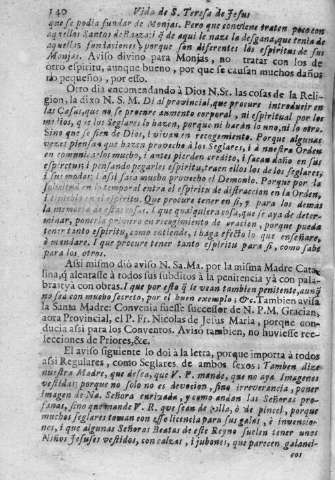 140 Vida de S. Teresa de Jesus
que se podia fundar de Monjas. Pero que conviene traten poco con
aquellos Santos de Baeza: i q̃ de aqui le naze la desgana, que tenia de
aquellas fundaciones; porque son diferentes los espiritus de sus
Monjas. Aviso divino para Monjas, no tratar con los de
otro espiritu, aunque bueno, por que se causan muchos daños
no pequeños, por esso.
Otro dia encomendando à Dios N. Sr. las cosas de la Reli-
gion, la dixo N. S. M. Di al provincial, que procure introducir en
las Casas, que no se procure aumento corporal, ni espiritual por los
medios, q̃ los Seglares lo hazen, porque ni harán lo uno, ni lo otro.
Sino que se fien de Dios, i vivan en recogimiento. Porque algunas
vezes piensan que hazen provecho à los Seglares, i à nuestra Orden
en comunicarlos mucho, i antes pierden credito, i sacan daño en sus
espiritus; i pensando pegarles espiritu, traen ellos los de los seglares,
i sus modos: i assi saca mucho provecho el Demonio. Porque por la
solicitud en lo temporal entra el espiritu de distraccion en la Orden,
el espiritu. Que procure tener en si, y para los demas
la memoria de estas cosas, i que qualquiera cosa, que se aya de deter-
minar, ponerla primero en recogimiento de oracion, porque pueda
tener tanto espiritu, como entiende, i haga efecto lo que enseñare,
ò mandare. I que procure tener tanto espiritu para si, como sabe
para los otros.
Assi mismo diò aviso N. Sa. Ma. por la misma Madre Cata-
lina, q̃ alentasse à todos sus subditos à la penitencia yà con pala-
bras, i yà con obras. I que por esto q̃ le vean tambien penitente, aunq̃
no sea con mucho secreto, por el buen exemplo; &c. Tambien avisa
la Santa Madre: Convenia fuesse sucessor de N. P. M. Gracian,
aora Provincial, el P. Fr. Nicolas de Jesus Maria, porque con-
ducia assi para los Conventos. Avisò tambien, no huviesse re-
elecciones de Priores, &c.
El aviso siguiente lo doi à la letra, porque importa à todos
assi Regulares, como Seglares de ambos sexos: Tambien dize
nuestra Madre, que desea, que V. P. mande, que no aya Imagenes
vestidas; porque no solo no es devocion, sino irreverencia, poner
Imagen de Na. Señora enrizada, y como andan las Señoras pro-
fanas, sino que mande V. R. que sean de bulto, ò de pincel, porque
muchos seglares toman con esso licencia para sus galas, è invencio-
nes, i que algunas Señoras Beatas de este Reyno suelen tener unos
Niños Jesuses vestidos, con calzas, i jubones, que parecen galanci-
cos